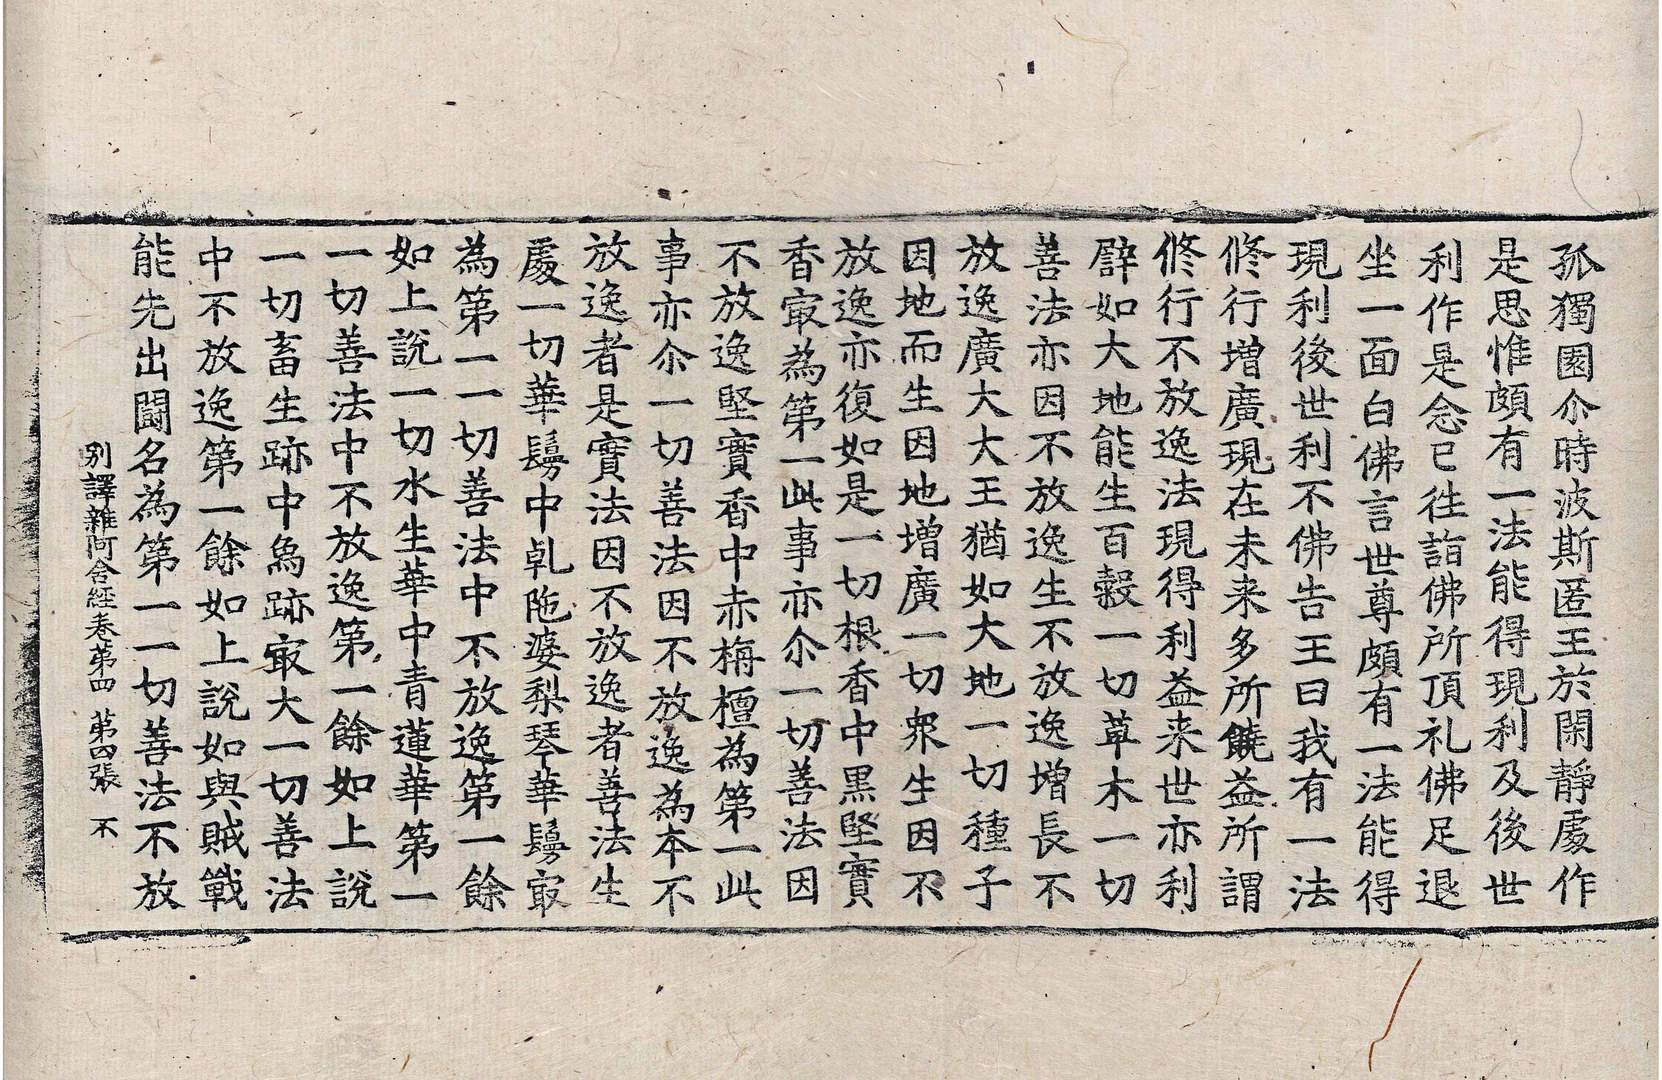 孤獨園尒時波斯匿王於閑靜處作
是思惟頗有一法能得現利及後世
利作是念已往詣佛所頂礼佛足退
坐一面白佛言世尊頗有一法能得
現利後世利不佛告王曰我有一法
修行增廣現在未来多所饒益所謂
修行不放逸法現得利益来世亦利
譬如大地能生百糓一切草木一切
善法亦因不放逸生不放逸增長不
放逸廣大大王猶如大地一切種子
因地而生因地增廣一切衆生因不
放逸亦復如是一切根香中黒堅實
香㝡為第一此事亦尒一切善法因
不放逸堅實香中赤栴檀為第一此
事亦尒一切善法因不放逸為本不
放逸者是實法因不放逸者善法生
處一切華鬘中乹陁婆梨琴華鬘㝡
為第一一切善法中不放逸第一餘
如上說一切水生華中青蓮華第一
一切善法中不放逸第一餘如上說
一切畜生跡中象跡㝡大一切善法
中不放逸第一餘如上說如與賊戰
能先出鬪名為第一一切善法不放
別譯雜阿含經卷第四 第四張 不